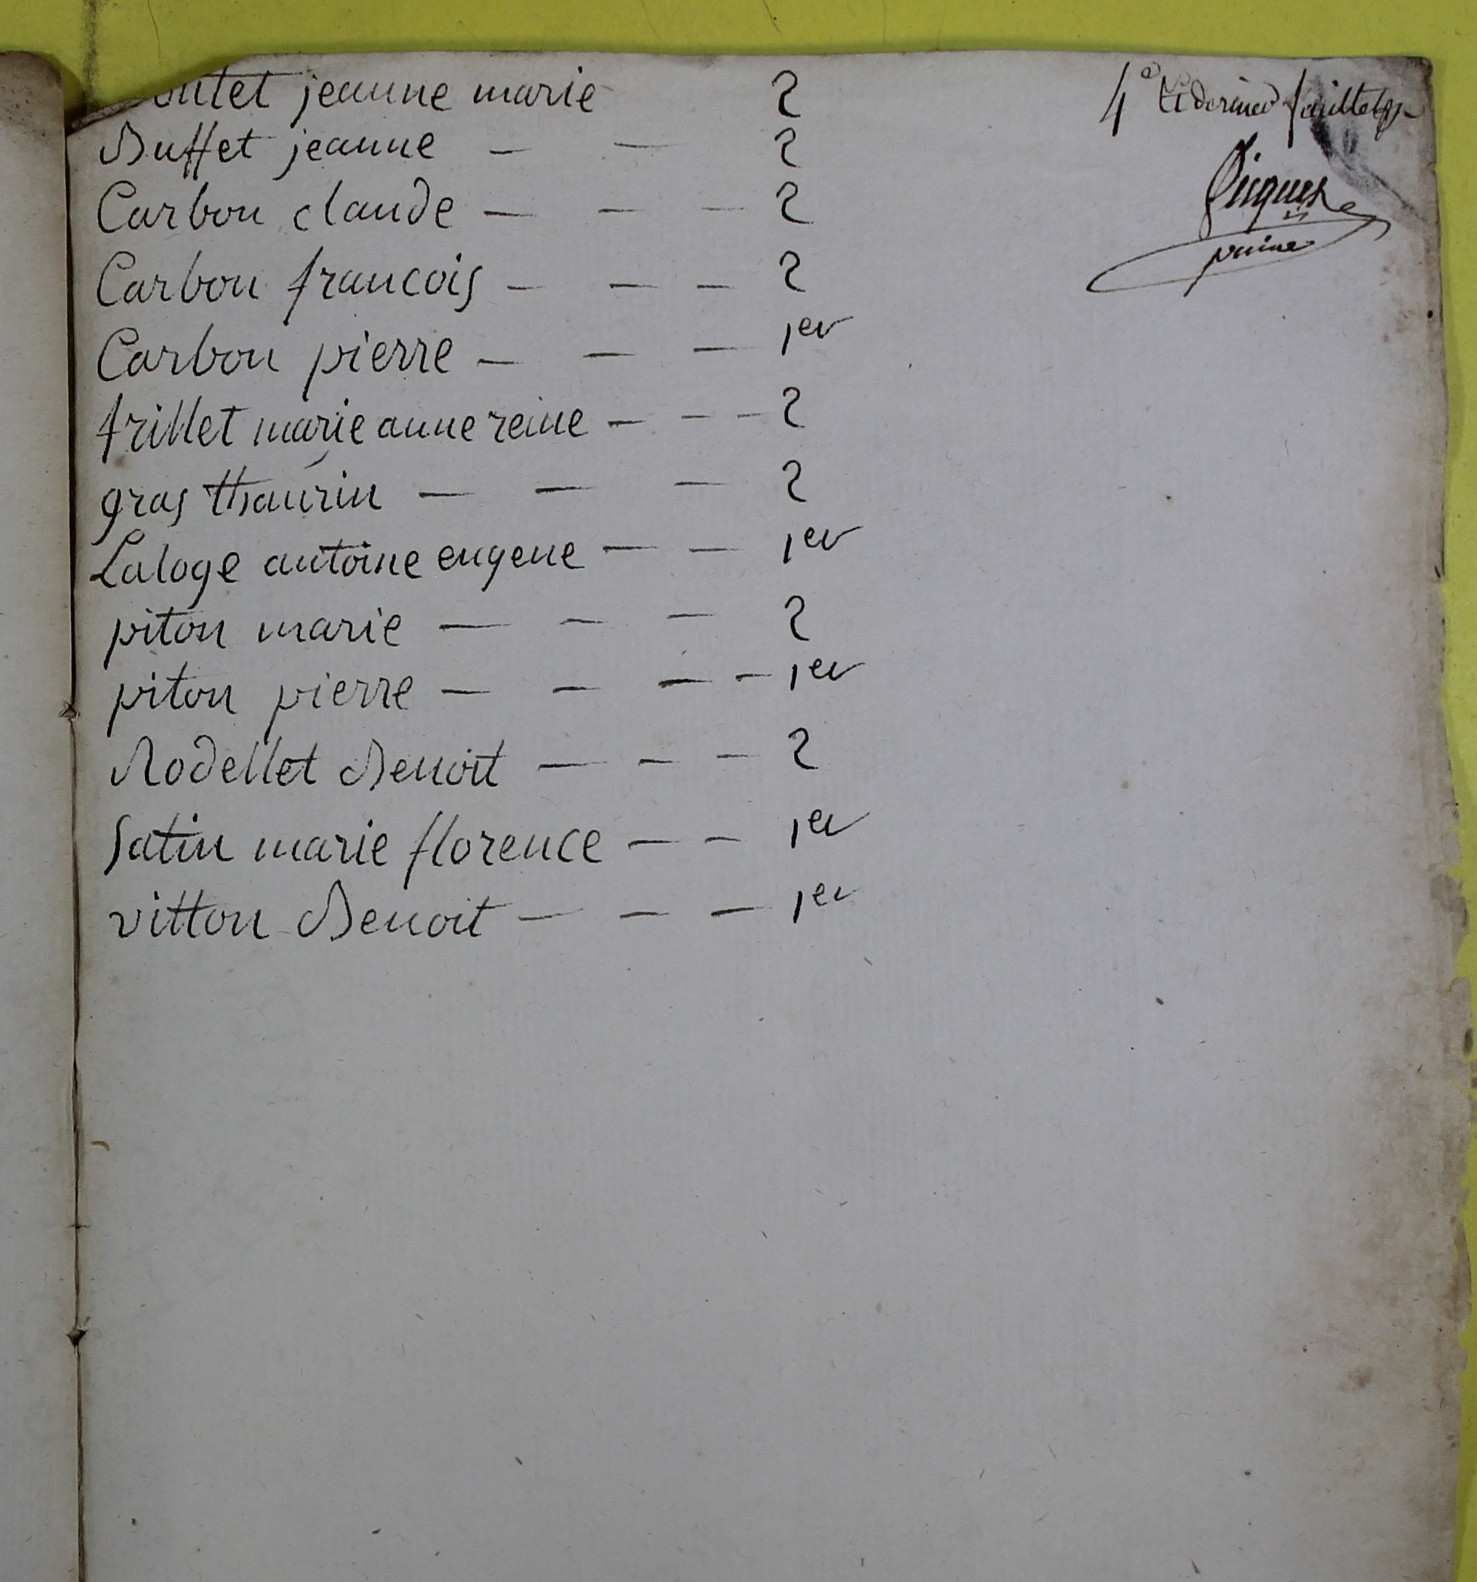 outet jeanne marie 2
Buffet jeanne — — 2
Carbon claude — — — 2
Carbon francois — — — 2
Carbon pierre — — — 1er
frillet marie anne reine — — — 2
gras thaurin — — — 2
Laloge antoine eugene — — 1er
piton marie — — — 2
piton pierre — — — — 1er
Rodellet Benoit — — — 2
Satin marie florence — — 1er
vitton Benoit — — — 1er
4e et dernier feuillet